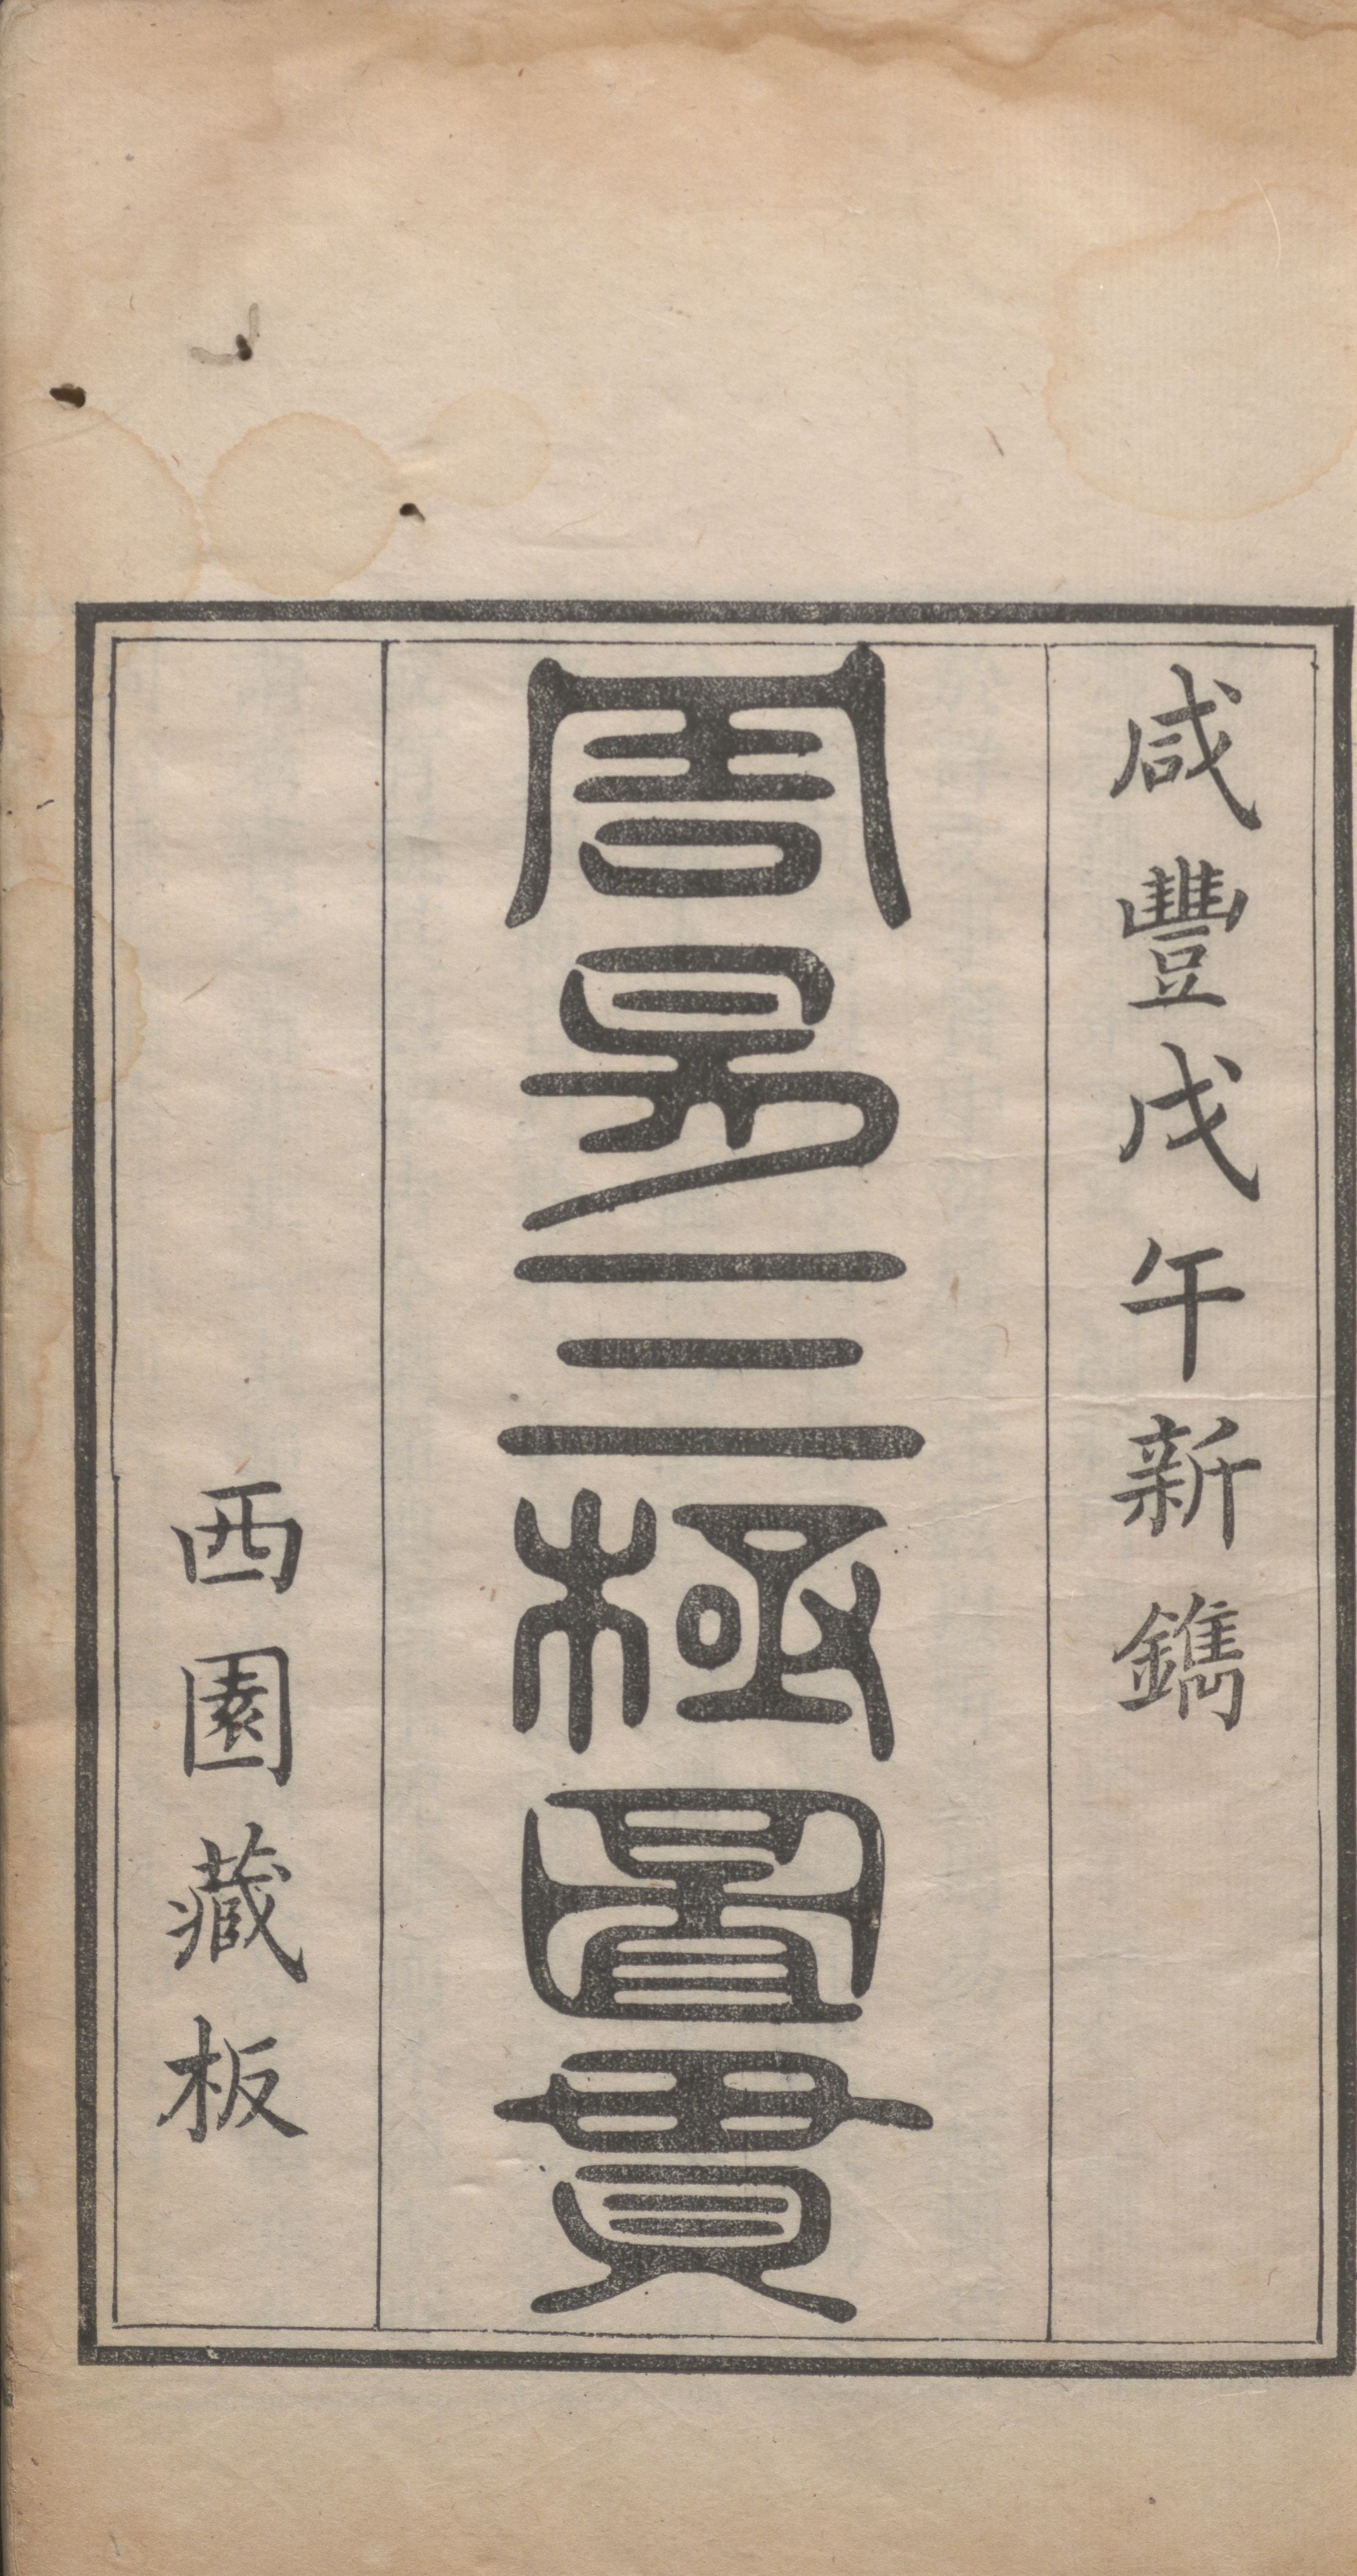 咸豐戊午新鐫
周易三極圖貫
西園藏板